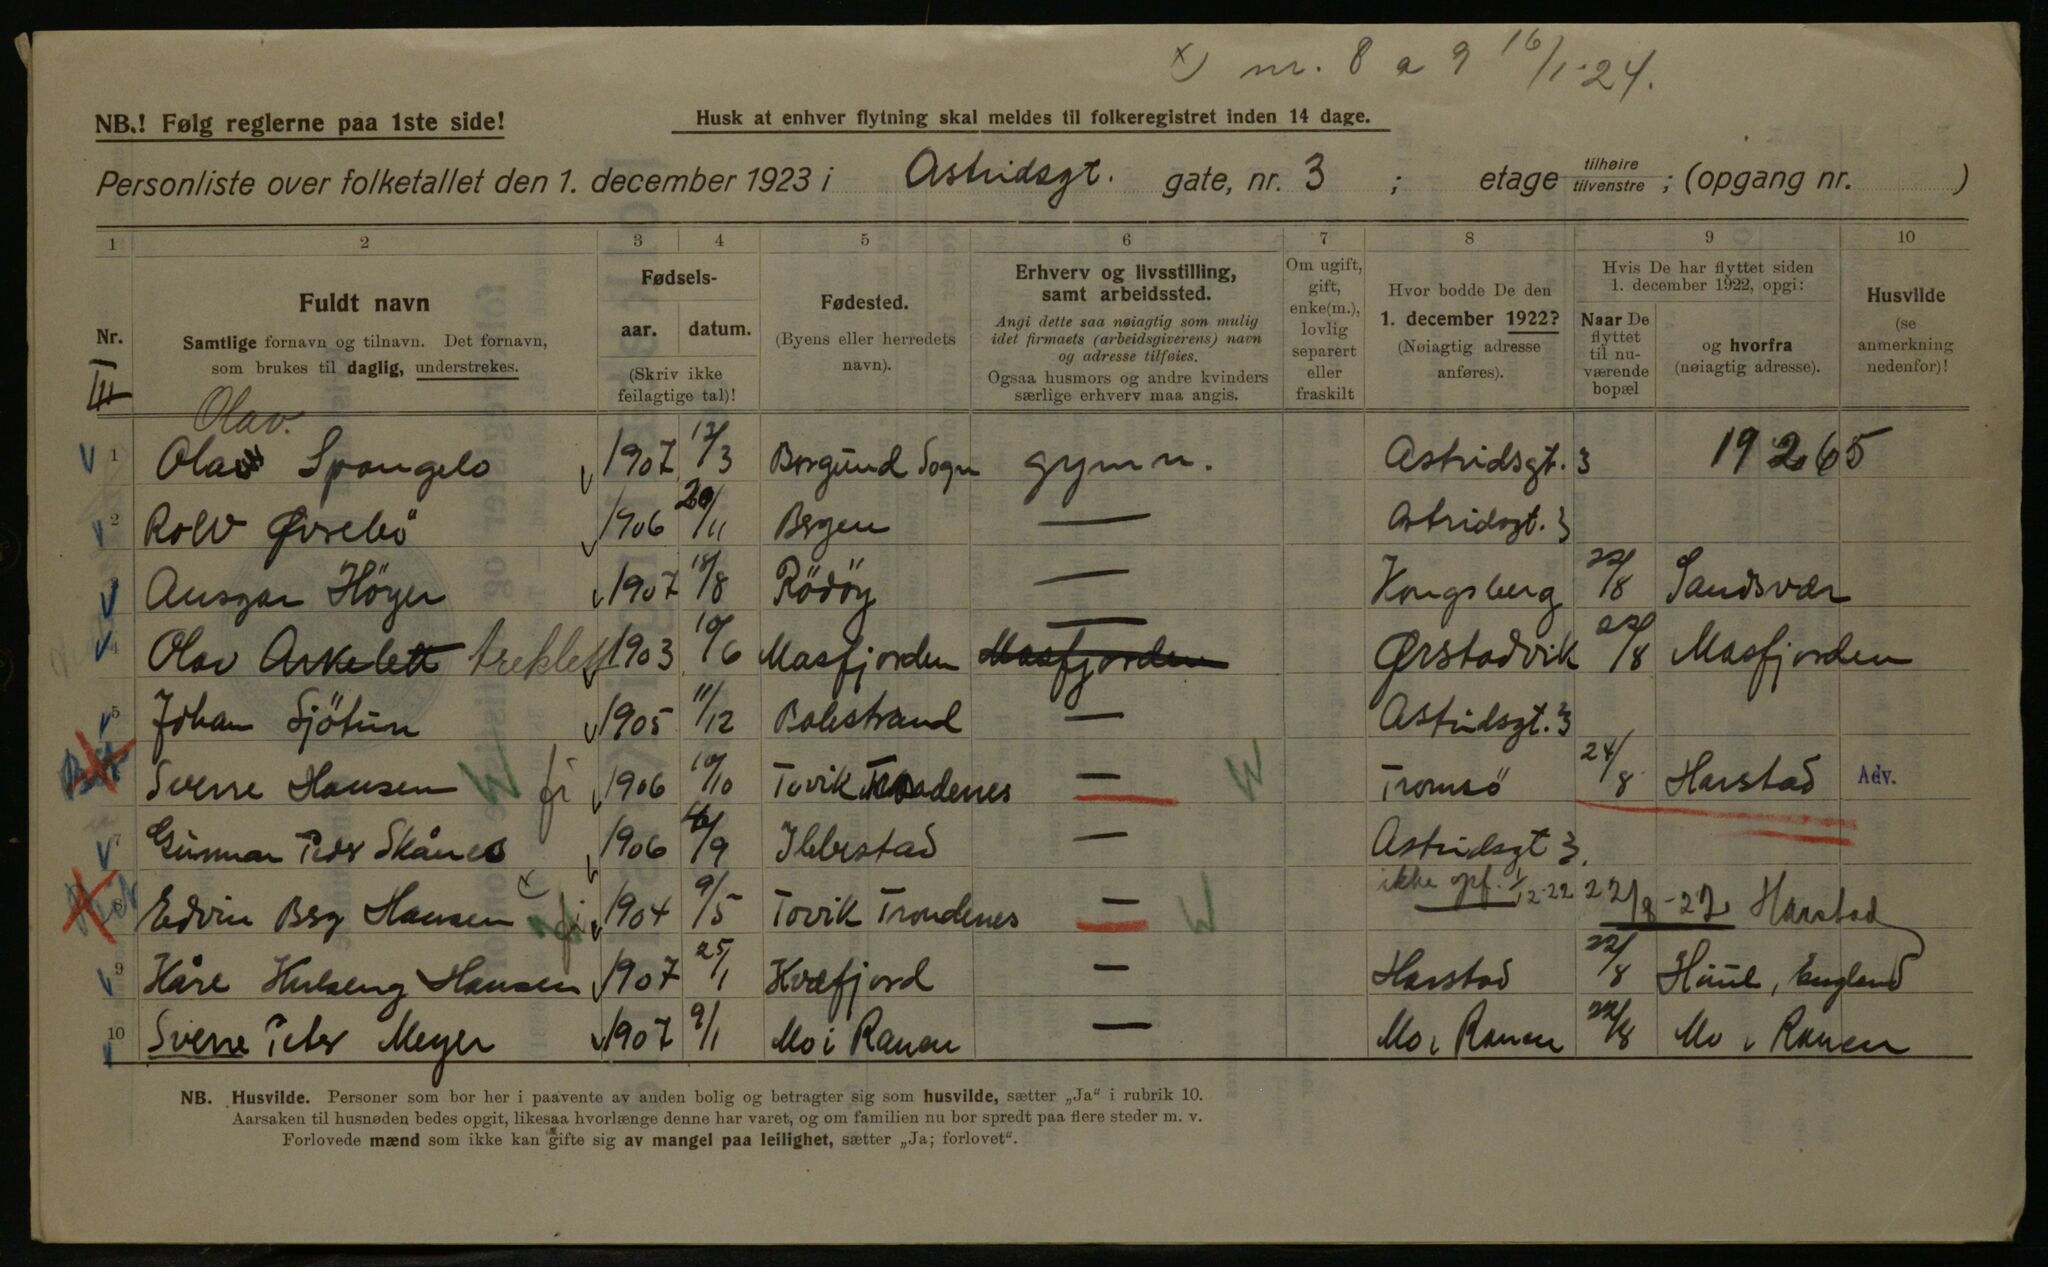 x) nr. 8 a 9 16/1-24.
NB.! Følg reglerne paa 1ste side!
Husk at enhver flytning skal meldes til folkeregistret inden 14 dage.
Personliste over folketallet den 1. december 1923 i Astridsgt. gate, nr. 3 ; etage tilhøire tilvenstre ; (opgang nr. )
1 2 3 4 5 6 7 8 9 10
Nr.
III
Fuldt navn
Samtlige fornavn og tilnavn. Det fornavn,
som brukes til daglig, understrekes.
Fødsels-
aar. datum.
(Skriv ikke
feilagtige tal)!
Fødested.
(Byens eller herredets
navn).
Erhverv og livsstilling,
samt arbeidssted.
Angi dette saa nøiagtig som mulig
idet firmaets (arbeidsgiverens) navn
og adresse tilføies.
Ogsaa husmors og andre kvinders
særlige erhverv maa angis.
Om ugift,
gift,
enke(m.),
lovlig
separert
eller
fraskilt
Hvor bodde De den
1. december 1922?
(Nøiagtig adresse
anføres).
Hvis De har flyttet siden
1. december 1922, opgi:
Naar De
flyttet
til nu-
værende
bopæl
og hvorfra
(nøiagtig adresse).
Husvilde
(se
anmerkning
nedenfor)!
Olav.
1 Olav Spangelo 1907 12/3 Borgund Sogn gymn. Astridsgt. 3 19265
2 Rolv Øvrebö 1906 20/11 Bergen — Astridsgt. 3
3 Ansgar Höyer 1907 18/8 Rödöy — Kongsberg 22/8 Sandsvær
4 Olav Arkelett treklett 1903 10/6 Masfjorden Masfjorden — Ørstadvik 22/8 Masfjorden
5 Johan Sjötun 1905 11/12 Balestrand — Astridsgt. 3
Sverre Hansen fi 1906 10/10 Tovik Trondenes — Tromsö 24/8 Harstad Adv.
7 Gunnar Peder Skånes 1906 6/9 Ibbestad — Astridsgt 3.
ikke opf. 1/12-22
8 Edvin Berg Hansen x) fi 1904 9/5 Tovik Trondenes — 22/8-22 Harstad
9 Kåre Hulseng Hansen 1907 25/1 Kvæfjord — Harstad 22/8 Hull, England
10 Sverre Peter Meyer 1907 9/1 Mo i Ranen — Mo i Ranen 22/8 Mo i Ranen
NB. Husvilde. Personer som bor her i paavente av anden bolig og betragter sig som husvilde, sætter „Ja“ i rubrik 10.
Aarsaken til husnøden bedes opgit, likesaa hvorlænge denne har varet, og om familien nu bor spredt paa flere steder m. v.
Forlovede mænd som ikke kan gifte sig av mangel paa leilighet, sætter „Ja; forlovet“.